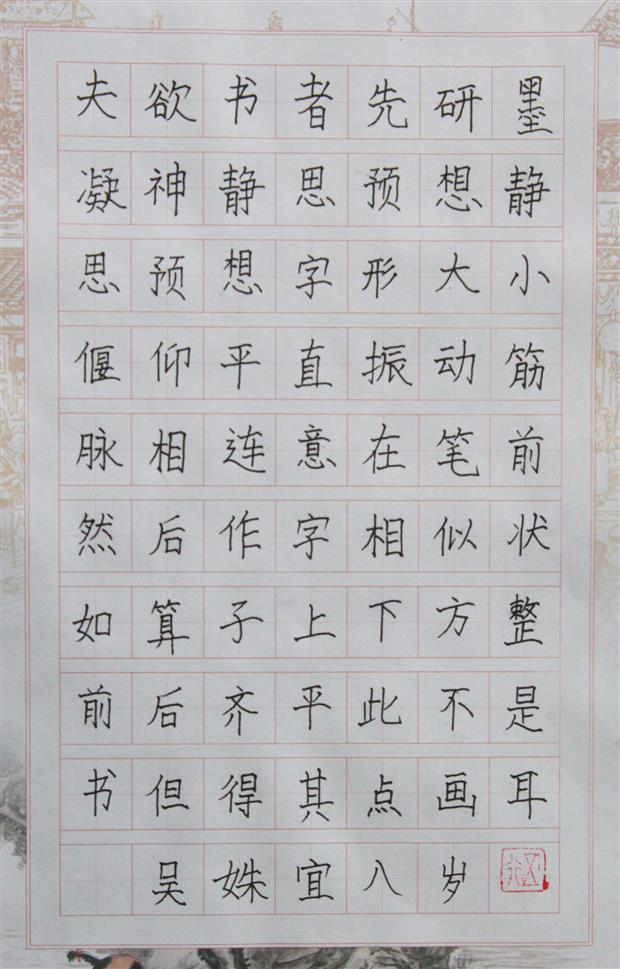 夫欲书者先研墨
凝神静思预想静
思预想字形大小
偃仰平直振动筋
脉相连意在笔前
然后作字相似状
如算子上下方整
前后齐平此不是
书但得其点画耳
吴姝宜八岁